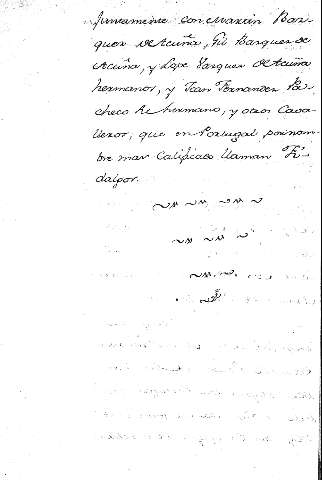 juntamente con Martin Baz-
quez de Acuña, Gil Bazquez de
Acuña, y Lope Vazquez de Acuña
hermanos, y Juan Fernandez Pa-
checo su hermano, y otros Cava-
lleros, que en Portugal por nom-
bre mas Calificado llaman Fi-
dalgos.